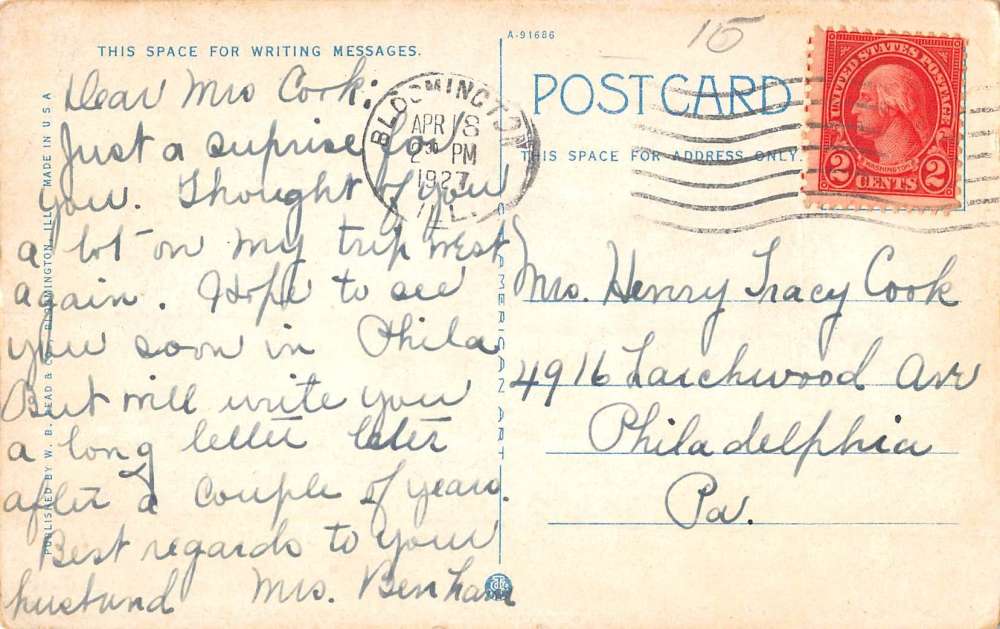 THIS SPACE FOR WRITING MESSAGES.
Dear Mrs Cook:
Just a suprise for
you. Thought of you
a lot on my trip west
again. Hope to see
you soon in Phila
But will write you
a long letter later
after a couple of years.
Best regards to your
husband Mrs. Benham
PUBLISHED BY W. B. READ & CO., BLOOMINGTON, ILL. MADE IN U S A
BLOOMINGTON
APR 8
PM
1927
ILL.
C.T. AMERICAN ART
A-91686
15
POST CARD
THIS SPACE FOR ADDRESS ONLY.
UNITED STATES POSTAGE
WASHINGTON
2 CENTS 2
Mrs. Henry Tracy Cook
4916 Larchwood Ave
Philadelphia
Pa.